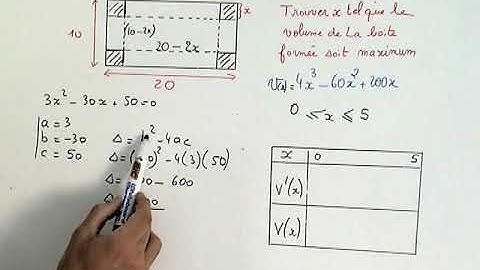 x
10
(10-2x)
20-2x
20
Trouver x tel que le
volume de La boite
formée soit maximum
V(x)=4x³-60x²+200x
0 ⩽ x ⩽ 5
3x²-30x+50=0
a = 3
b = -30
c = 50
-4ac
-4(3)(50)
- 600
x 0 5
V'(x)
V(x)